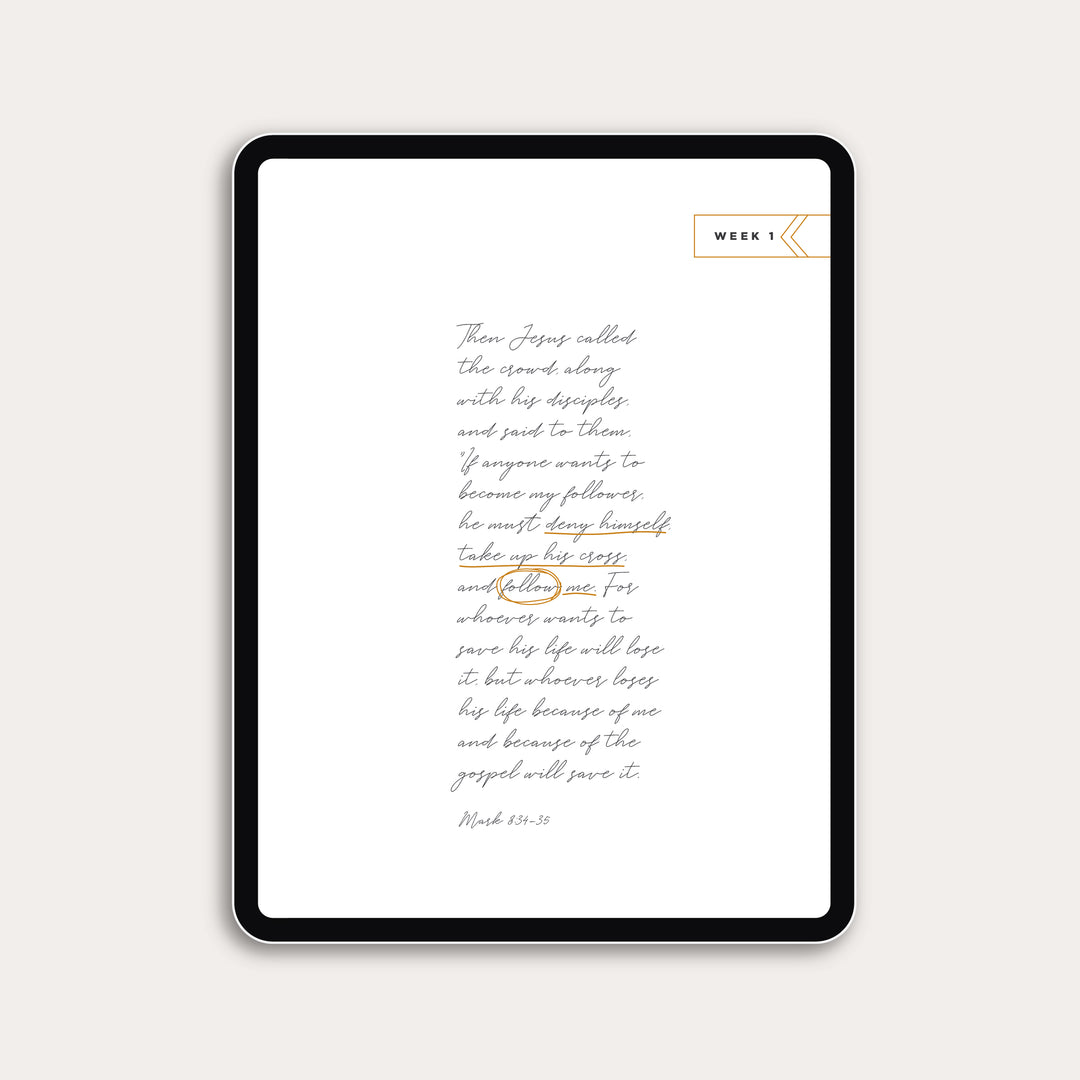 WEEK 1
Then Jesus called
the crowd, along
with his disciples,
and said to them,
"If anyone wants to
become my follower,
he must deny himself,
take up his cross,
and follow me. For
whoever wants to
save his life will lose
it, but whoever loses
his life because of me
and because of the
gospel will save it.
Mark 8:34-35